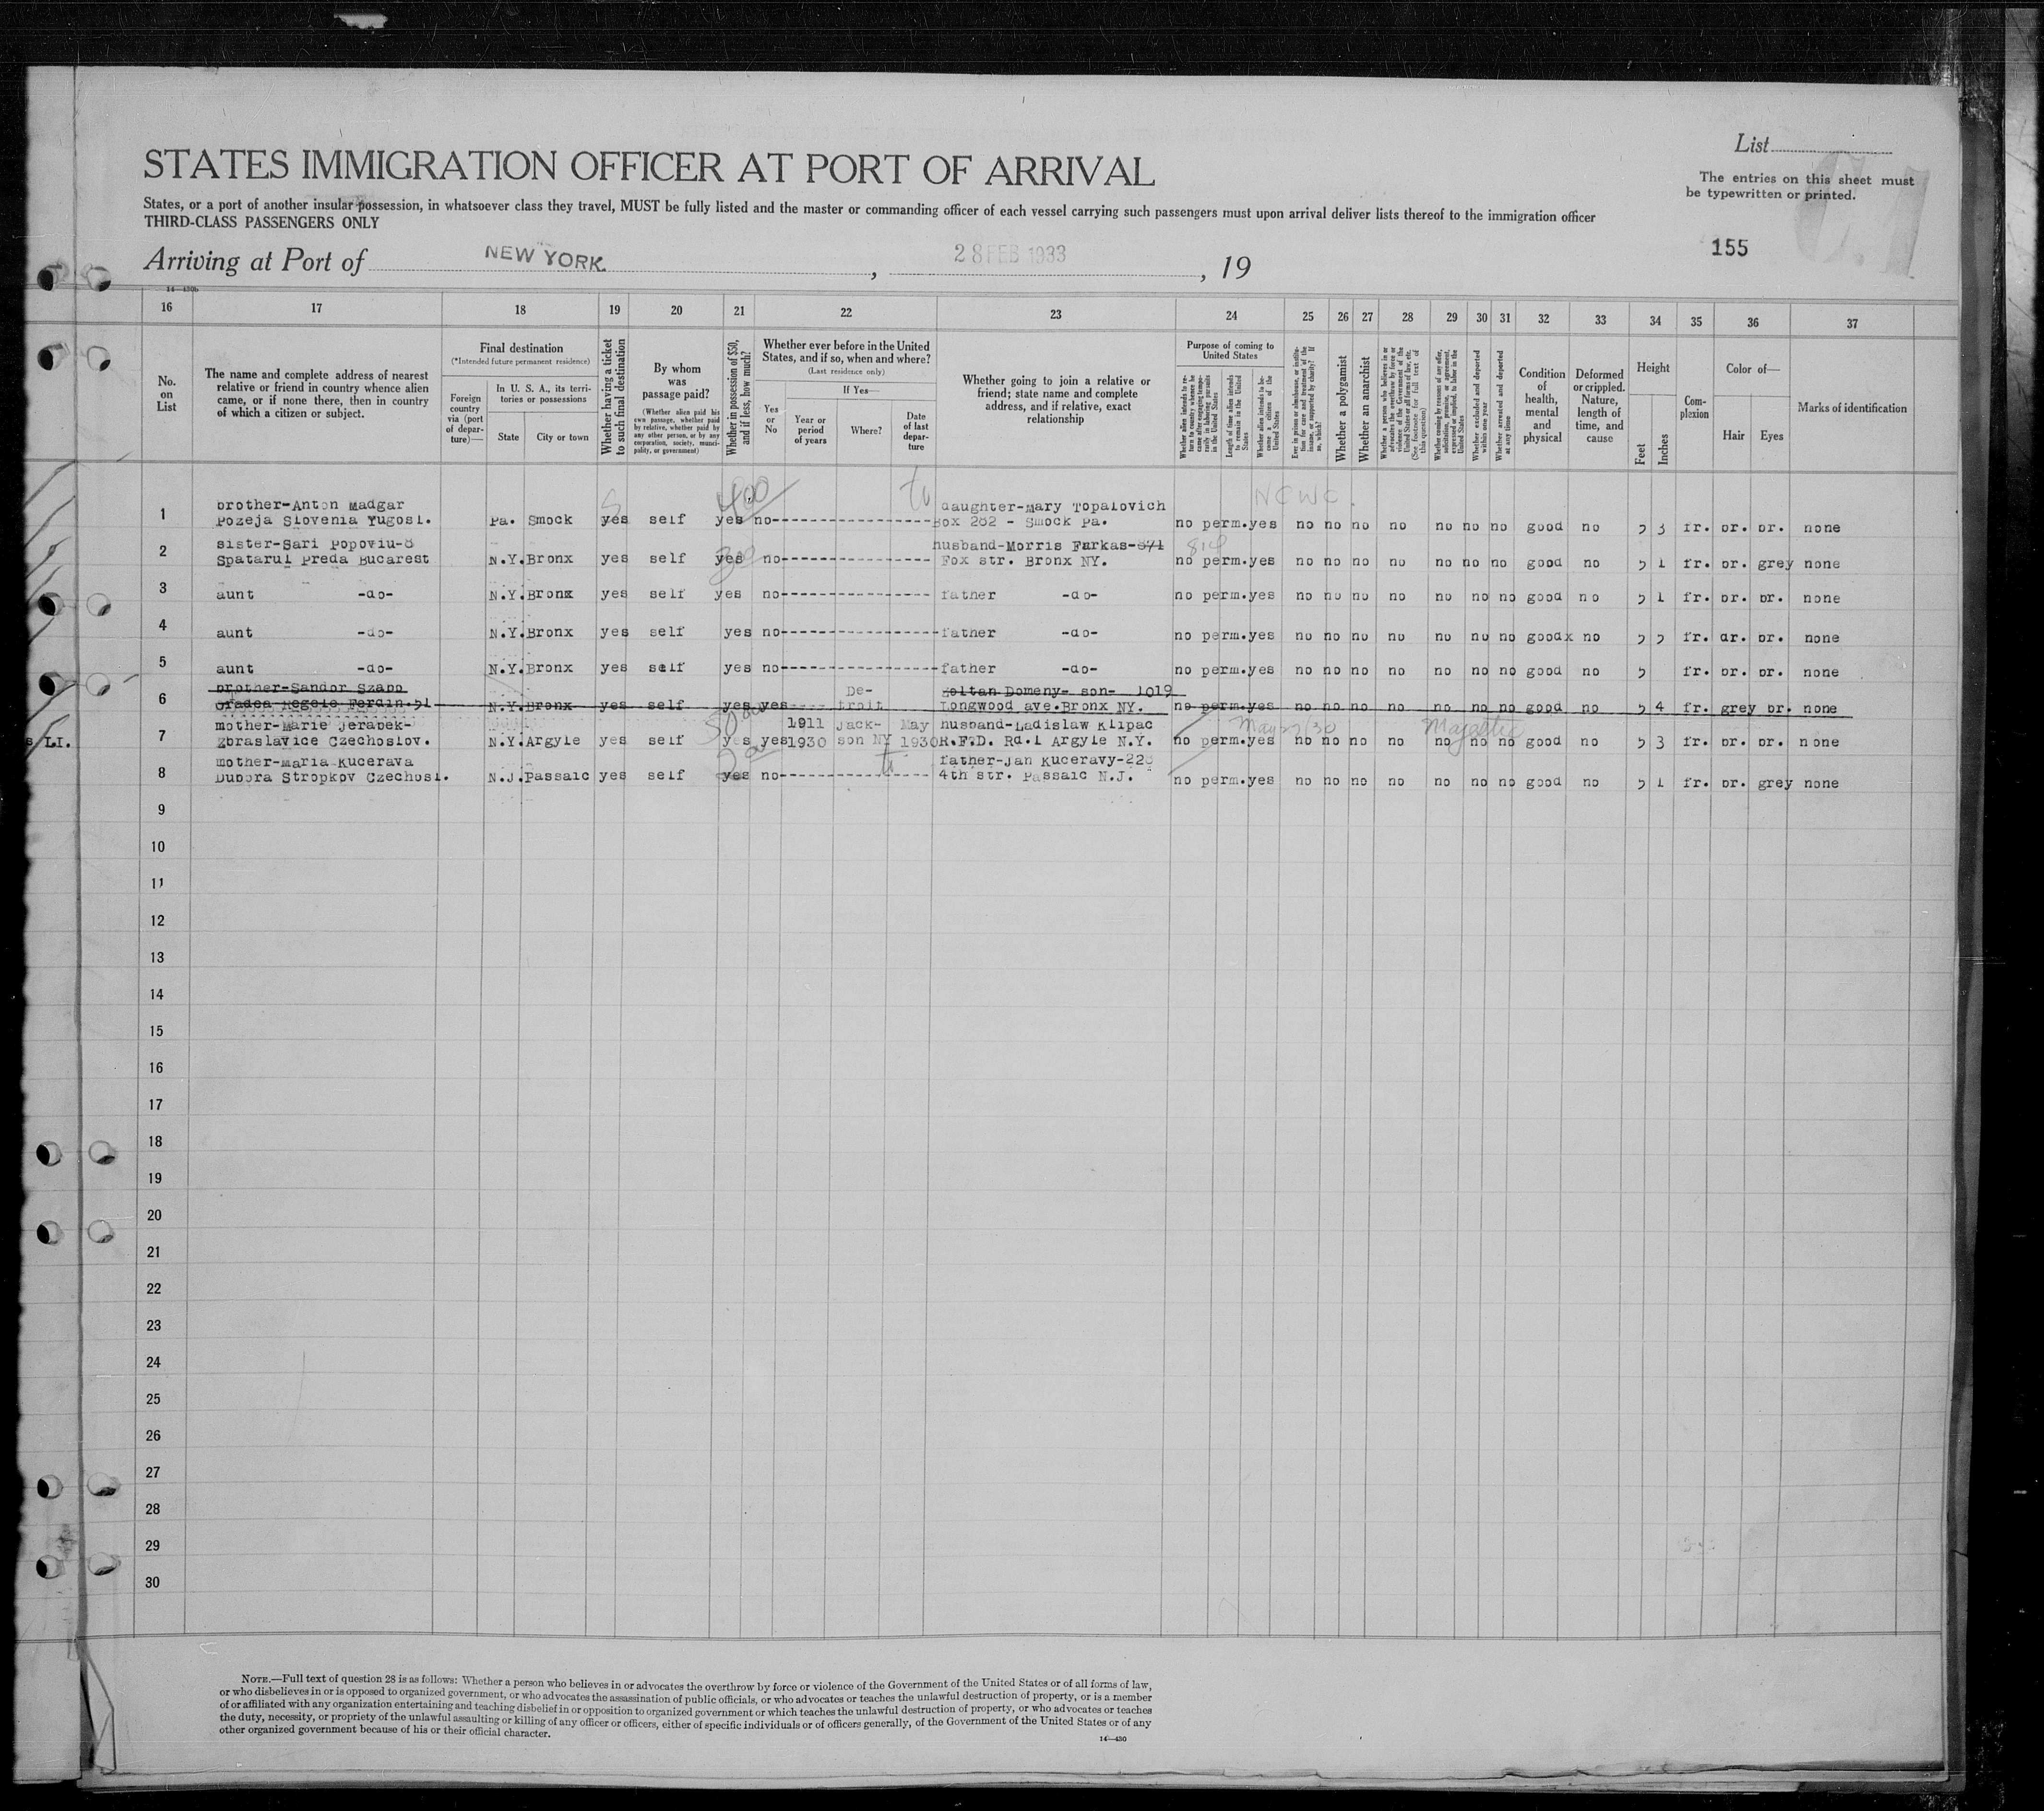 List
The entries on this sheet must
be typewritten or printed.
STATES IMMIGRATION OFFICER AT PORT OF ARRIVAL
States, or a port of another insular possession, in whatsoever class they travel, MUST be fully listed and the master or commanding officer of each vessel carrying such passengers must upon arrival deliver lists thereof to the immigration officer
THIRD-CLASS PASSENGERS ONLY
Arriving at Port of NEW YORK. , 28 FEB 1933 , 19
155
14—430b
16 17 18 19 20 21 22 23 24 25 26 27 28 29 30 31 32 33 34 35 36 37
No.
on
List
The name and complete address of nearest
relative or friend in country whence alien
came, or if none there, then in country
of which a citizen or subject.
Final destination
(*Intended future permanent residence)
Foreign
country
via (port
of depar-
ture)—
In U. S. A., its terri-
tories or possessions
State City or town
Whether having a ticket
to such final destination
By whom
was
passage paid?
(Whether alien paid his
own passage, whether paid
by relative, whether paid by
any other person, or by any
corporation, society, munici-
pality, or government)
Whether in possession of $50,
and if less, how much?
Whether ever before in the United
States, and if so, when and where?
(Last residence only)
Yes
or
No
If Yes—
Year or
period
of years
Where?
Date
of last
depar-
ture
Whether going to join a relative or
friend; state name and complete
address, and if relative, exact
relationship
Purpose of coming to
United States
Whether alien intends to re-
turn to country whence he
came after engaging tempo-
rarily in laboring pursuits
in the United States
Length of time alien intends
to remain in the United
States
Whether alien intends to be-
come a citizen of the
United States
Ever in prison or almshouse, or institu-
tion for care and treatment of the
insane, or supported by charity? If
so, which?
Whether a polygamist
Whether an anarchist
Whether a person who believes in or
advocates the overthrow by force or
violence of the Government of the
United States or all forms of law, etc.
(See footnote for full text of
this question)
Whether coming by reasons of any offer,
solicitation, promise, or agreement,
expressed or implied, to labor in the
United States
Whether excluded and deported
within one year
Whether arrested and deported
at any time
Condition
of
health,
mental
and
physical
Deformed
or crippled.
Nature,
length of
time, and
cause
Height
Feet
Inches
Com-
plexion
Color of—
Hair Eyes
Marks of identification
400 NCWC.
brother-Anton Madgar daughter-Mary Topalovich
1 Pozeja Slovenia Yugosl. Pa. Smock yes self yes no Box 282 - Smock Pa. no perm. yes no no no no no no no good no 5 3 fr. br. br. none
sister-Sari Popoviu-8 husband-Morris Farkas-871 814
2 Spatarul Preda Bucarest N.Y. Bronx yes self yes no Fox str. Bronx NY. no perm. yes no no no no no no no good no 5 1 fr. br. grey none
3 aunt -do- N.Y. Bronx yes self yes no father -do- no perm. yes no no no no no no no good no 5 1 fr. br. br. none
4 aunt -do- N.Y. Bronx yes self yes no father -do- no perm. yes no no no no no no no good no 5 5 fr. dr. br. none
5 aunt -do- N.Y. Bronx yes self yes no father -do- no perm. yes no no no no no no no good no 5 fr. br. br. none
brother-Sandor Szabo De- Zoltan Domeny- son- 1019
6 Oradea Regele Ferdin.51 N.Y. Bronx yes self yes yes troit Longwood ave. Bronx NY. no perm. yes no no no no no no no good no 5 4 fr. grey br. none
mother-Marie Jerabek- 1911 Jack- May husband-Ladislaw Klipac May 27/30 Majestic
LI. 7 Zbraslavice Czechoslov. N.Y. Argyle yes self yes yes 1930 son NY 1930 R.F.D. Rd.1 Argyle N.Y. no perm. yes no no no no no no no good no 5 3 fr. br. br. none
mother-Maria Kucerava father-Jan Kuceravy-228
8 Dubora Stropkov Czechosl. N.J. Passaic yes self yes no 4th str. Passaic N.J. no perm. yes no no no no no no no good no 5 1 fr. br. grey none
9
10
11
12
13
14
15
16
17
18
19
20
21
22
23
24
25
26
27
28
29
30
NOTE.—Full text of question 28 is as follows: Whether a person who believes in or advocates the overthrow by force or violence of the Government of the United States or of all forms of law,
or who disbelieves in or is opposed to organized government, or who advocates the assassination of public officials, or who advocates or teaches the unlawful destruction of property, or is a member
of or affiliated with any organization entertaining and teaching disbelief in or opposition to organized government or which teaches the unlawful destruction of property, or who advocates or teaches
the duty, necessity, or propriety of the unlawful assaulting or killing of any officer or officers, either of specific individuals or of officers generally, of the Government of the United States or of any
other organized government because of his or their official character.
14—430